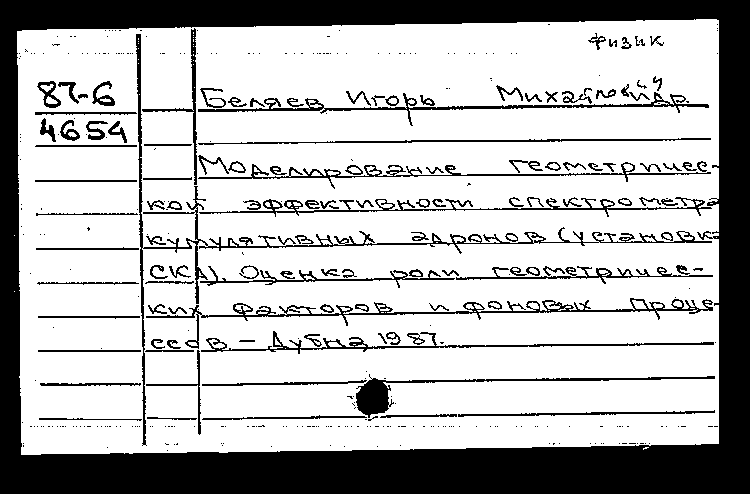 Физик
87-6
4654
Беляев Игорь Михайлович, др
Моделирование геометричес-
кой эффективности спектрометра
кумулятивных адронов (установка
СКА). Оценка роли геометричес-
ких факторов и фоновых проце-
ссов – Дубна 1987.